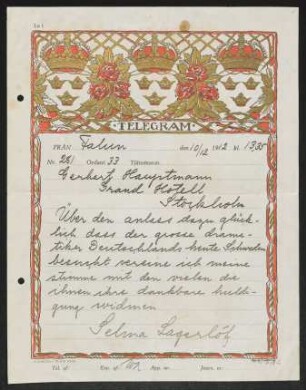 TELEGRAM
FRÅN Falun den 10/12 1912 kl. 1935
Nr. 281 Ordant 33 Tjänsteanm.
Gerhert Hauptmann
Grand Hotell
Stockholm
Über den anlass dazu glück-
lich dass der grosse drama-
tiker Deutschlands heute Schweden
besucht vereine ich meine
stimme mit den vielen die
ihnen ihre dankbare huldi-
gung widmen
Selma Lagerlöf
Tid. af Exp. af